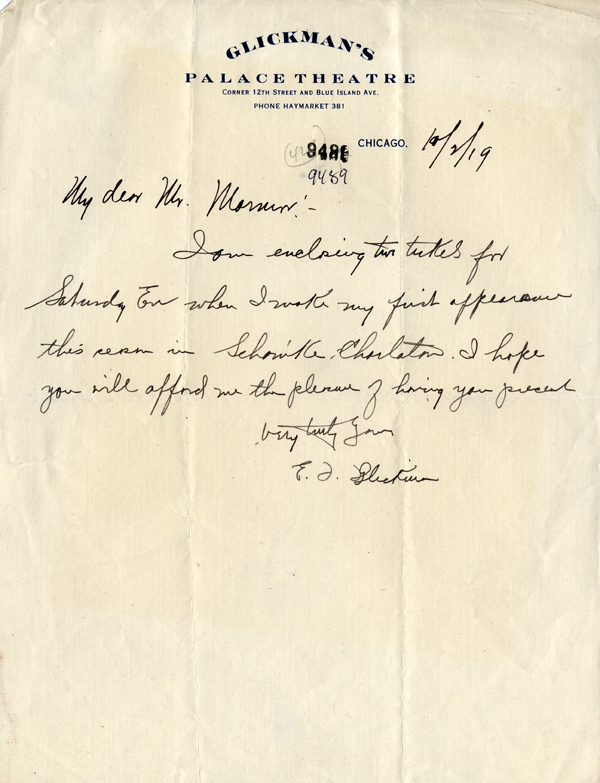 GLICKMAN'S
PALACE THEATRE
CORNER 12TH STREET AND BLUE ISLAND AVE.
PHONE HAYMARKET 381
CHICAGO. 10/2/19
9489
My dear Mr.
I am enclosing two tickets for
Saturday Eve when I make my first appearance
this season in Charlatan. I hope
you will afford me the pleasure of having you present
Very truly Yours
E. Glickman